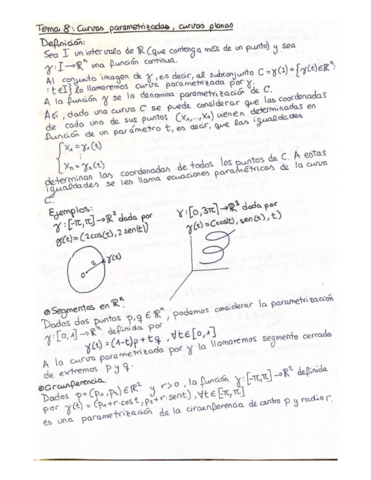 Tema 8: Curvas parametrizadas, curvas planas
Definición:
Sea I un intervalo de ℝ (que contenga más de un punto) y sea
γ: I → ℝⁿ una función continua.
Al conjunto imagen de γ, es decir, al subconjunto C = γ(I) = {γ(t) ∈ ℝⁿ:
: t ∈ I} lo llamaremos curva parametrizada por γ.
A la función γ se la denomina parametrización de C.
Así, dado una curva C se puede considerar que las coordenadas
de cada uno de sus puntos (x₁, ..., xₙ) vienen determinadas en
función de un parámetro t, es decir, que las igualdades
x₁ = γ₁(t)
⋮
xₙ = γₙ(t)
determinan las coordenadas de todos los puntos de C. A estas
igualdades se les llama ecuaciones paramétricas de la curva
C.
Ejemplos:
γ: [-π, π] → ℝ² dada por
γ(t) = (2cos(t), 2sen(t))
γ: [0, 3π] → ℝ³ dada por
γ(t) = (cos(t), sen(t), t)
2
γ(t)
Segmentos en ℝⁿ.
Dados dos puntos p, q ∈ ℝⁿ, podemos considerar la parametrización
γ: [0, 1] → ℝⁿ definida por
γ(t) = (1-t)p + tq, ∀t ∈ [0, 1]
A la curva parametrizada por γ la llamaremos segmento cerrado
de extremos p y q.
Circunferencia.
Dados p = (p₁, p₂) ∈ ℝ² y r > 0, la función γ: [-π, π] → ℝ² definida
por γ(t) = (p₁ + r·cos t, p₂ + r·sen t), ∀t ∈ [-π, π]
es una parametrización de la circunferencia de centro p y radio r.